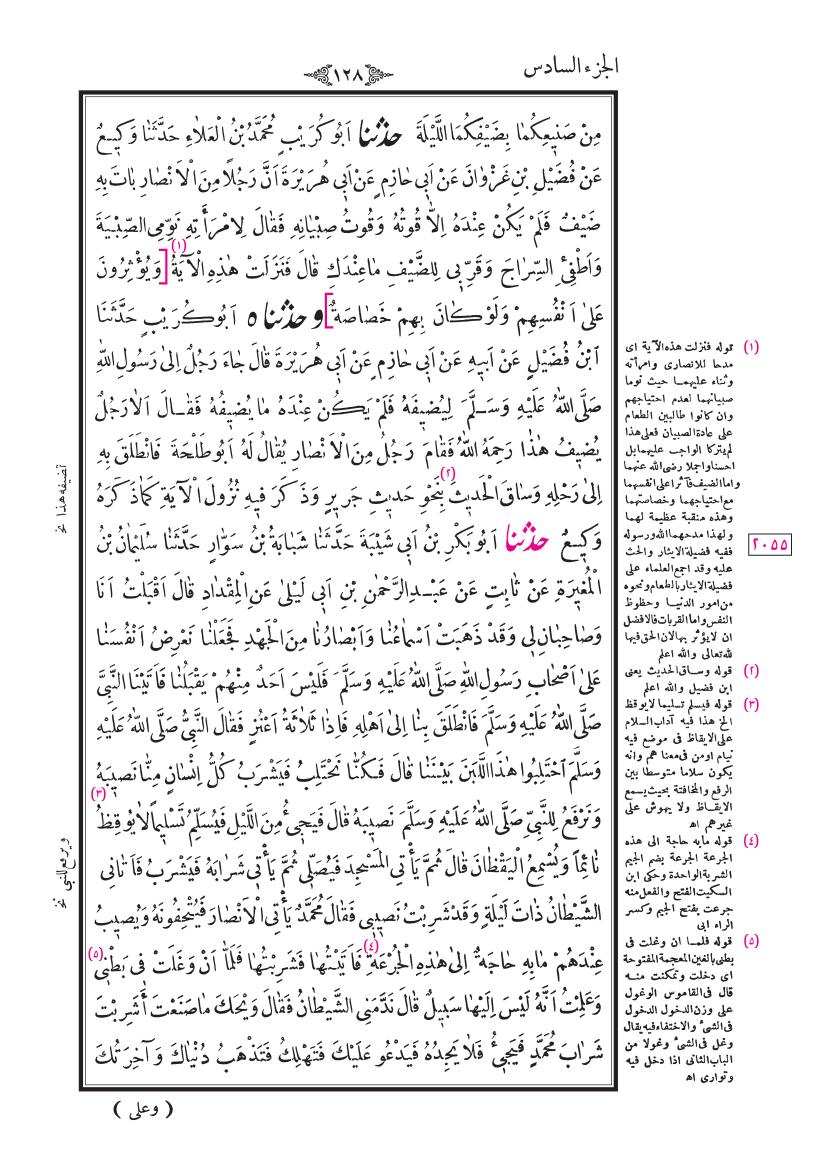 الجزء السادس
١٢٨
مِنْ صَنِيعِكُمَا بِضَيْفِكُمَا اللَّيْلَةَ حدثنا اَبُوكُرَيْبٍ مُحَمَّدُ بْنُ الْعَلَاءِ حَدَّثَنَا وَكِيعٌ
عَنْ فُضَيْلِ بْنِ غَزْوَانَ عَنْ اَبِى حَازِمٍ عَنْ اَبِى هُرَيْرَةَ اَنَّ رَجُلاً مِنَ الْاَنْصَارِ بَاتَ بِهِ
ضَيْفٌ فَلَمْ يَكُنْ عِنْدَهُ اِلَّا قُوتُهُ وَقُوتُ صِبْيَانِهِ فَقَالَ لِامْرَأَتِهِ نَوِّمِى الصِّبْيَةَ
وَاَطْفِئِ السِّرَاجَ وَقَرِّبِى لِلضَّيْفِ مَاعِنْدَكِ قَالَ فَنَزَلَتْ هٰذِهِ الْآيَةُ (١) [وَيُؤْثِرُونَ
عَلىٰ اَنْفُسِهِمْ وَلَوْ كَانَ بِهِمْ خَصَاصَةٌ] و حدثناه اَبُوكُرَيْبٍ حَدَّثَنَا
ابْنُ فُضَيْلٍ عَنْ اَبِيهِ عَنْ اَبِى حَازِمٍ عَنْ اَبِى هُرَيْرَةَ قَالَ جَاءَ رَجُلٌ اِلىٰ رَسُولِ اللهِ
صَلَّى اللهُ عَلَيْهِ وَسَلَّمَ لِيُضِيفَهُ فَلَمْ يَكُنْ عِنْدَهُ مَا يُضِيفُهُ فَقَالَ اَلَا رَجُلٌ
يُضِيفُ هٰذَا رَحِمَهُ اللهُ فَقَامَ رَجُلٌ مِنَ الْاَنْصَارِ يُقَالُ لَهُ اَبُوطَلْحَةَ فَانْطَلَقَ بِهِ
اِلىٰ رَحْلِهِ وَسَاقَ الْحَدِيثَ (٢) بِنَحْوِ حَدِيثِ جَرِيرٍ وَذَكَرَ فِيهِ نُزُولَ الْآيَةِ كَمَاذَكَرَهُ
وَكِيعٌ حدثنا اَبُوبَكْرِ بْنُ اَبِى شَيْبَةَ حَدَّثَنَا شَبَابَةُ بْنُ سَوَّارٍ حَدَّثَنَا سُلَيْمَانُ بْنُ
الْمُغِيرَةِ عَنْ ثَابِتٍ عَنْ عَبْدِ الرَّحْمٰنِ بْنِ اَبِى لَيْلىٰ عَنِ الْمِقْدَادِ قَالَ اَقْبَلْتُ اَنَا
وَصَاحِبَانِ لِى وَقَدْ ذَهَبَتْ اَسْمَاعُنَا وَاَبْصَارُنَا مِنَ الْجَهْدِ فَجَعَلْنَا نَعْرِضُ اَنْفُسَنَا
عَلىٰ اَصْحَابِ رَسُولِ اللهِ صَلَّى اللهُ عَلَيْهِ وَسَلَّمَ فَلَيْسَ اَحَدٌ مِنْهُمْ يَقْبَلُنَا فَاَتَيْنَا النَّبِيَّ
صَلَّى اللهُ عَلَيْهِ وَسَلَّمَ فَانْطَلَقَ بِنَا اِلىٰ اَهْلِهِ فَاِذَا ثَلَاثَةُ اَعْنُزٍ فَقَالَ النَّبِيُّ صَلَّى اللهُ عَلَيْهِ
وَسَلَّمَ احْتَلِبُوا هٰذَا اللَّبَنَ بَيْنَنَا قَالَ فَكُنَّا نَحْتَلِبُ فَيَشْرَبُ كُلُّ اِنْسَانٍ مِنَّا نَصِيبَهُ
وَنَرْفَعُ لِلنَّبِيِّ صَلَّى اللهُ عَلَيْهِ وَسَلَّمَ نَصِيبَهُ قَالَ فَيَجِىءُ مِنَ اللَّيْلِ فَيُسَلِّمُ تَسْلِيماً لَايُوقِظُ (٣)
نَائِماً وَيُسْمِعُ الْيَقْظَانَ قَالَ ثُمَّ يَأْتِى الْمَسْجِدَ فَيُصَلِّى ثُمَّ يَأْتِى شَرَابَهُ فَيَشْرَبُ فَاَتَانِى
الشَّيْطَانُ ذَاتَ لَيْلَةٍ وَقَدْ شَرِبْتُ نَصِيبِى فَقَالَ مُحَمَّدٌ يَأْتِى الْاَنْصَارَ فَيُتْحِفُونَهُ وَيُصِيبُ
عِنْدَهُمْ مَابِهِ حَاجَةٌ اِلىٰ هٰذِهِ الْجُرْعَةِ (٤) فَاَتَيْتُهَا فَشَرِبْتُهَا فَلَمَّا اَنْ وَغَلَتْ فِى بَطْنِى (٥)
وَعَلِمْتُ اَنَّهُ لَيْسَ اِلَيْهَا سَبِيلٌ قَالَ نَدَّمَنِى الشَّيْطَانُ فَقَالَ وَيْحَكَ مَاصَنَعْتَ أَشَرِبْتَ
شَرَابَ مُحَمَّدٍ فَيَجِىءُ فَلَا يَجِدُهُ فَيَدْعُو عَلَيْكَ فَتَهْلِكُ فَتَذْهَبُ دُنْيَاكَ وَآخِرَتُكَ
( وعلى )
(١) قوله فنزلت هذه الآية اى
مدحا للانصارى وامرأته
وثناء عليهما حيث نوما
صبيانهما لعدم احتياجهم
وان كانوا طالبين الطعام
على عادة الصبيان فعلى هذا
لم يتركا الواجب عليهما بل
احسنا واجملا رضى الله عنهما
واما الضيف فآثرا على انفسهما
مع احتياجهما وخصاصتهما
وهذه منقبة عظيمة لهما
ولهذا مدحهما الله ورسوله
ففيه فضيلة الايثار والحث
عليه وقد اجمع العلماء على
فضيلة الايثار بالطعام ونحوه
من امور الدنيا وحظوظ
النفس واما القربات فالافضل
ان لا يؤثر بها لان الحق فيها
لله تعالى والله اعلم
(٢) قوله وساق الحديث يعنى
ابن فضيل والله اعلم
(٣) قوله فيسلم تسليما لا يوقظ
الخ هذا فيه آداب السلام
على الايقاظ فى موضع فيه
نيام او من فى معناهم وانه
يكون سلاما متوسطا بين
الرفع والمخافتة بحيث يسمع
الايقاظ ولا يهوش على
غيرهم اه
(٤) قوله مابه حاجة الى هذه
الجرعة الجرعة بضم الجيم
الشربة الواحدة وحكى ابن
السكيت الفتح والفعل منه
جرعت بفتح الجيم وكسر
الراء ابى
(٥) قوله فلما ان وغلت فى
بطنى بالغين المعجمة المفتوحة
اى دخلت وتمكنت منه
قال فى القاموس الوغول
على وزن الدخول الدخول
فى الشئ والاختفاء فيه يقال
وغل فى الشئ وغولا من
الباب الثانى اذا دخل فيه
وتوارى اه
٢٠٥٥
تضيفه هذا نخ
ويرفع للنبى نخ